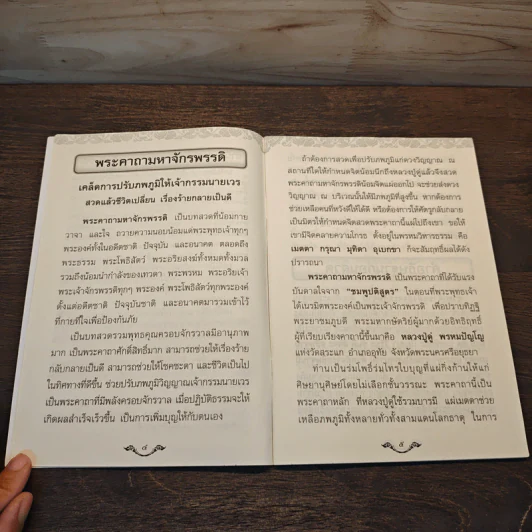 พระคาถามหาจักรพรรดิ
เคล็ดการปรับภพภูมิให้เจ้ากรรมนายเวร
สวดแล้วชีวิตเปลี่ยน เรื่องร้ายกลายเป็นดี
พระคาถามหาจักรพรรดิ เป็นบทสวดที่น้อมกาย
วาจา และใจ ถวายความนอบน้อมแด่พระพุทธเจ้าทุกๆ
พระองค์ทั้งในอดีตชาติ ปัจจุบัน และอนาคต ตลอดถึง
พระธรรม พระโพธิสัตว์ พระอริยสงฆ์ทั้งหมดทั้งมวล
รวมถึงน้อมนำกำลังของเทวดา พระพรหม พระอริยเจ้า
พระเจ้าจักรพรรดิทุกๆ พระองค์ พระโพธิสัตว์ทุกพระองค์
ตั้งแต่อดีตชาติ ปัจจุบันชาติ และอนาคตมารวมเข้าไว้
ที่กายที่ใจเพื่อป้องกันภัย
เป็นบทสวดรวมพุทธคุณครอบจักรวาลมีอานุภาพ
มาก เป็นพระคาถาศักดิ์สิทธิ์มาก สามารถช่วยให้เรื่องร้าย
กลับกลายเป็นดี สามารถช่วยให้โชคชะตา และชีวิตเป็นไป
ในทิศทางที่ดีขึ้น ช่วยปรับภพภูมิวิญญาณเจ้ากรรมนายเวร
เป็นพระคาถาที่มีพลังครอบจักรวาล เมื่อปฏิบัติธรรมจะให้
เกิดผลสำเร็จเร็วขึ้น เป็นการเพิ่มบุญให้กับตนเอง
๘
ถ้าต้องการสวดเพื่อปรับภพภูมิแก่ดวงวิญญาณ ณ
สถานที่ใดให้กำหนดจิตน้อมนึกถึงหลวงปู่ดู่แล้วจึงสวด
พระคาถามหาจักรพรรดิน้อมจิตแผ่ออกไป จะช่วยส่งดวง
วิญญาณ ณ บริเวณนั้นให้มีภพภูมิที่สูงขึ้น หากต้องการ
ช่วยเหลือคนที่หวังดีให้ได้ดี หรือต้องการให้ศัตรูกลับกลาย
เป็นมิตรให้กำหนดจิตสวดพระคาถานี้แผ่ไปถึงเขา ขอให้
เขามีจิตคลายความโกรธ ตั้งอยู่ในพรหมวิหารธรรม คือ
เมตตา กรุณา มุทิตา อุเบกขา ก็จะสัมฤทธิ์ผลได้ดัง
ปรารถนา
พระคาถามหาจักรพรรดิ เป็นพระคาถาที่ได้รับแรง
บันดาลใจจาก “ชมพูปติสูตร” ในตอนที่พระพุทธเจ้า
ได้เนรมิตพระองค์เป็นพระเจ้าจักรพรรดิ เพื่อปราบทิฏฐิ
พระยาชมภูบดี พระมหากษัตริย์ผู้มากด้วยอิทธิฤทธิ์
ผู้ที่เรียบเรียงคาถานี้ขึ้นมาคือ หลวงปู่ดู่ พรหมปัญโญ
แห่งวัดสะแก อำเภออุทัย จังหวัดพระนครศรีอยุธยา
ท่านเป็นร่มโพธิ์ร่มไทรใบบุญที่แผ่กิ่งก้านให้แก่
ศิษยานุศิษย์โดยไม่เลือกชั้นวรรณะ พระคาถานี้เป็น
พระคาถาหลัก ที่หลวงปู่ดู่ใช้รวมบารมี แผ่เมตตาช่วย
เหลือภพภูมิทั้งหลายทั่วทั้งสามแดนโลกธาตุ ในการ
๙